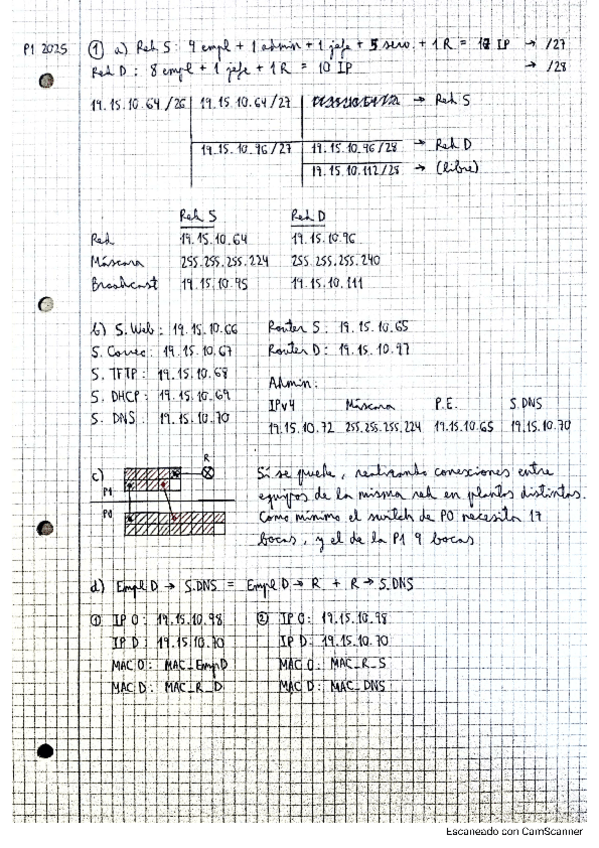 P1 2025
① a) Red S: 9 empl + 1 admin + 1 jefe + 5 serv. + 1 R = 17 IP → /27
Red D: 8 empl + 1 jefe + 1 R = 10 IP → /28
19.15.10.64/26 19.15.10.64/27 → Red S
19.15.10.96/27 19.15.10.96/28 → Red D
19.15.10.112/28 → (libre)
Red S Red D
Red 19.15.10.64 19.15.10.96
Máscara 255.255.255.224 255.255.255.240
Broadcast 19.15.10.95 19.15.10.111
b) S. Web: 19.15.10.66 Router S: 19.15.10.65
S. Correo: 19.15.10.67 Router D: 19.15.10.97
S. TFTP: 19.15.10.68
S. DHCP: 19.15.10.69
S. DNS: 19.15.10.70
Admin:
IPv4 Máscara P.E. S.DNS
19.15.10.72 255.255.255.224 19.15.10.65 19.15.10.70
c) P1 P0 R
Sí se puede, realizando conexiones entre
equipos de la misma red en plantas distintas.
Como mínimo el switch de P0 necesita 17
bocas, y el de la P1 9 bocas
d) Empl D → S.DNS = Empl D → R + R → S.DNS
① IP O: 19.15.10.98 ② IP O: 19.15.10.98
IP D: 19.15.10.70 IP D: 19.15.10.70
MAC O: MAC_EmpD MAC O: MAC_R_S
MAC D: MAC_R_D MAC D: MAC_DNS
Escaneado con CamScanner